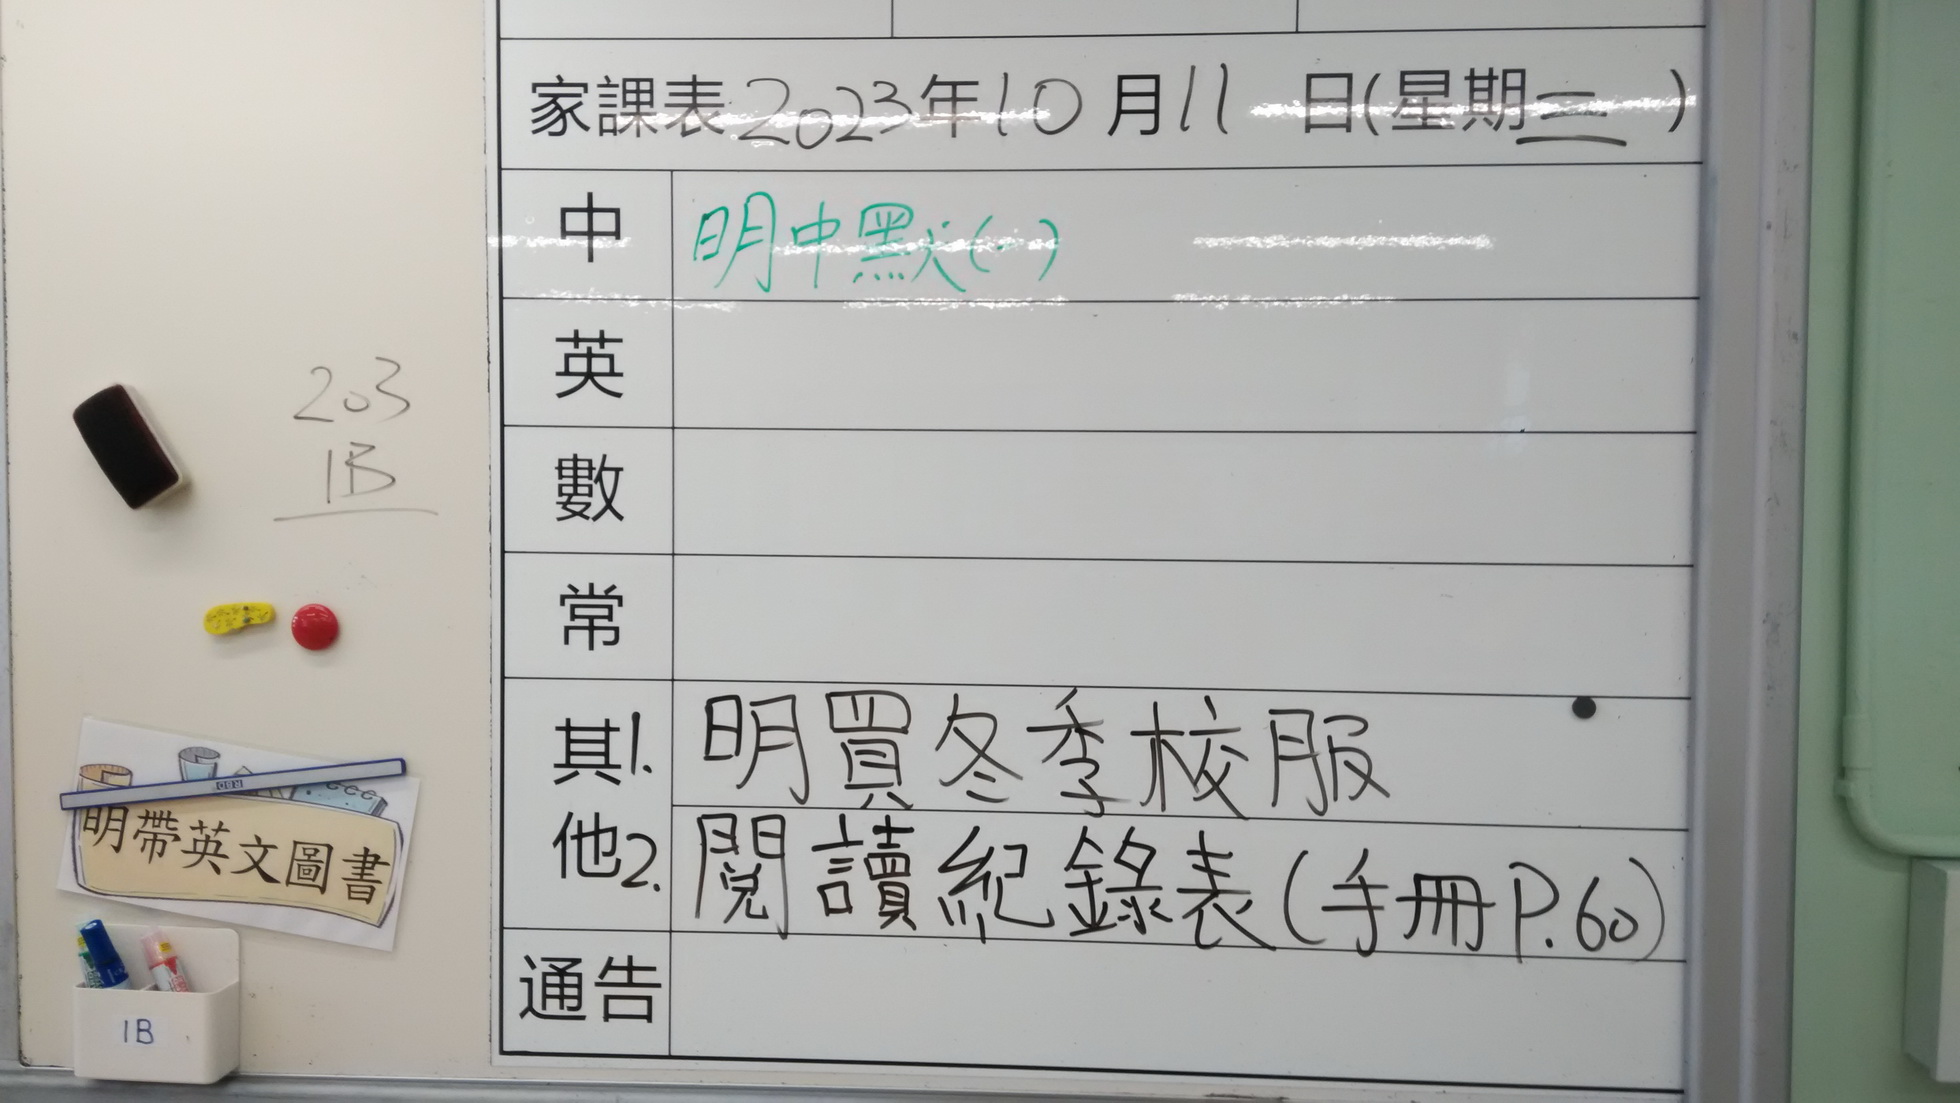 家課表 2023年10月11日(星期三)
中 明中默(一)
英
數
常
其他
1. 明買冬季校服
2. 閱讀紀錄表(手冊P.60)
通告
203
1B
明帶英文圖書
1B